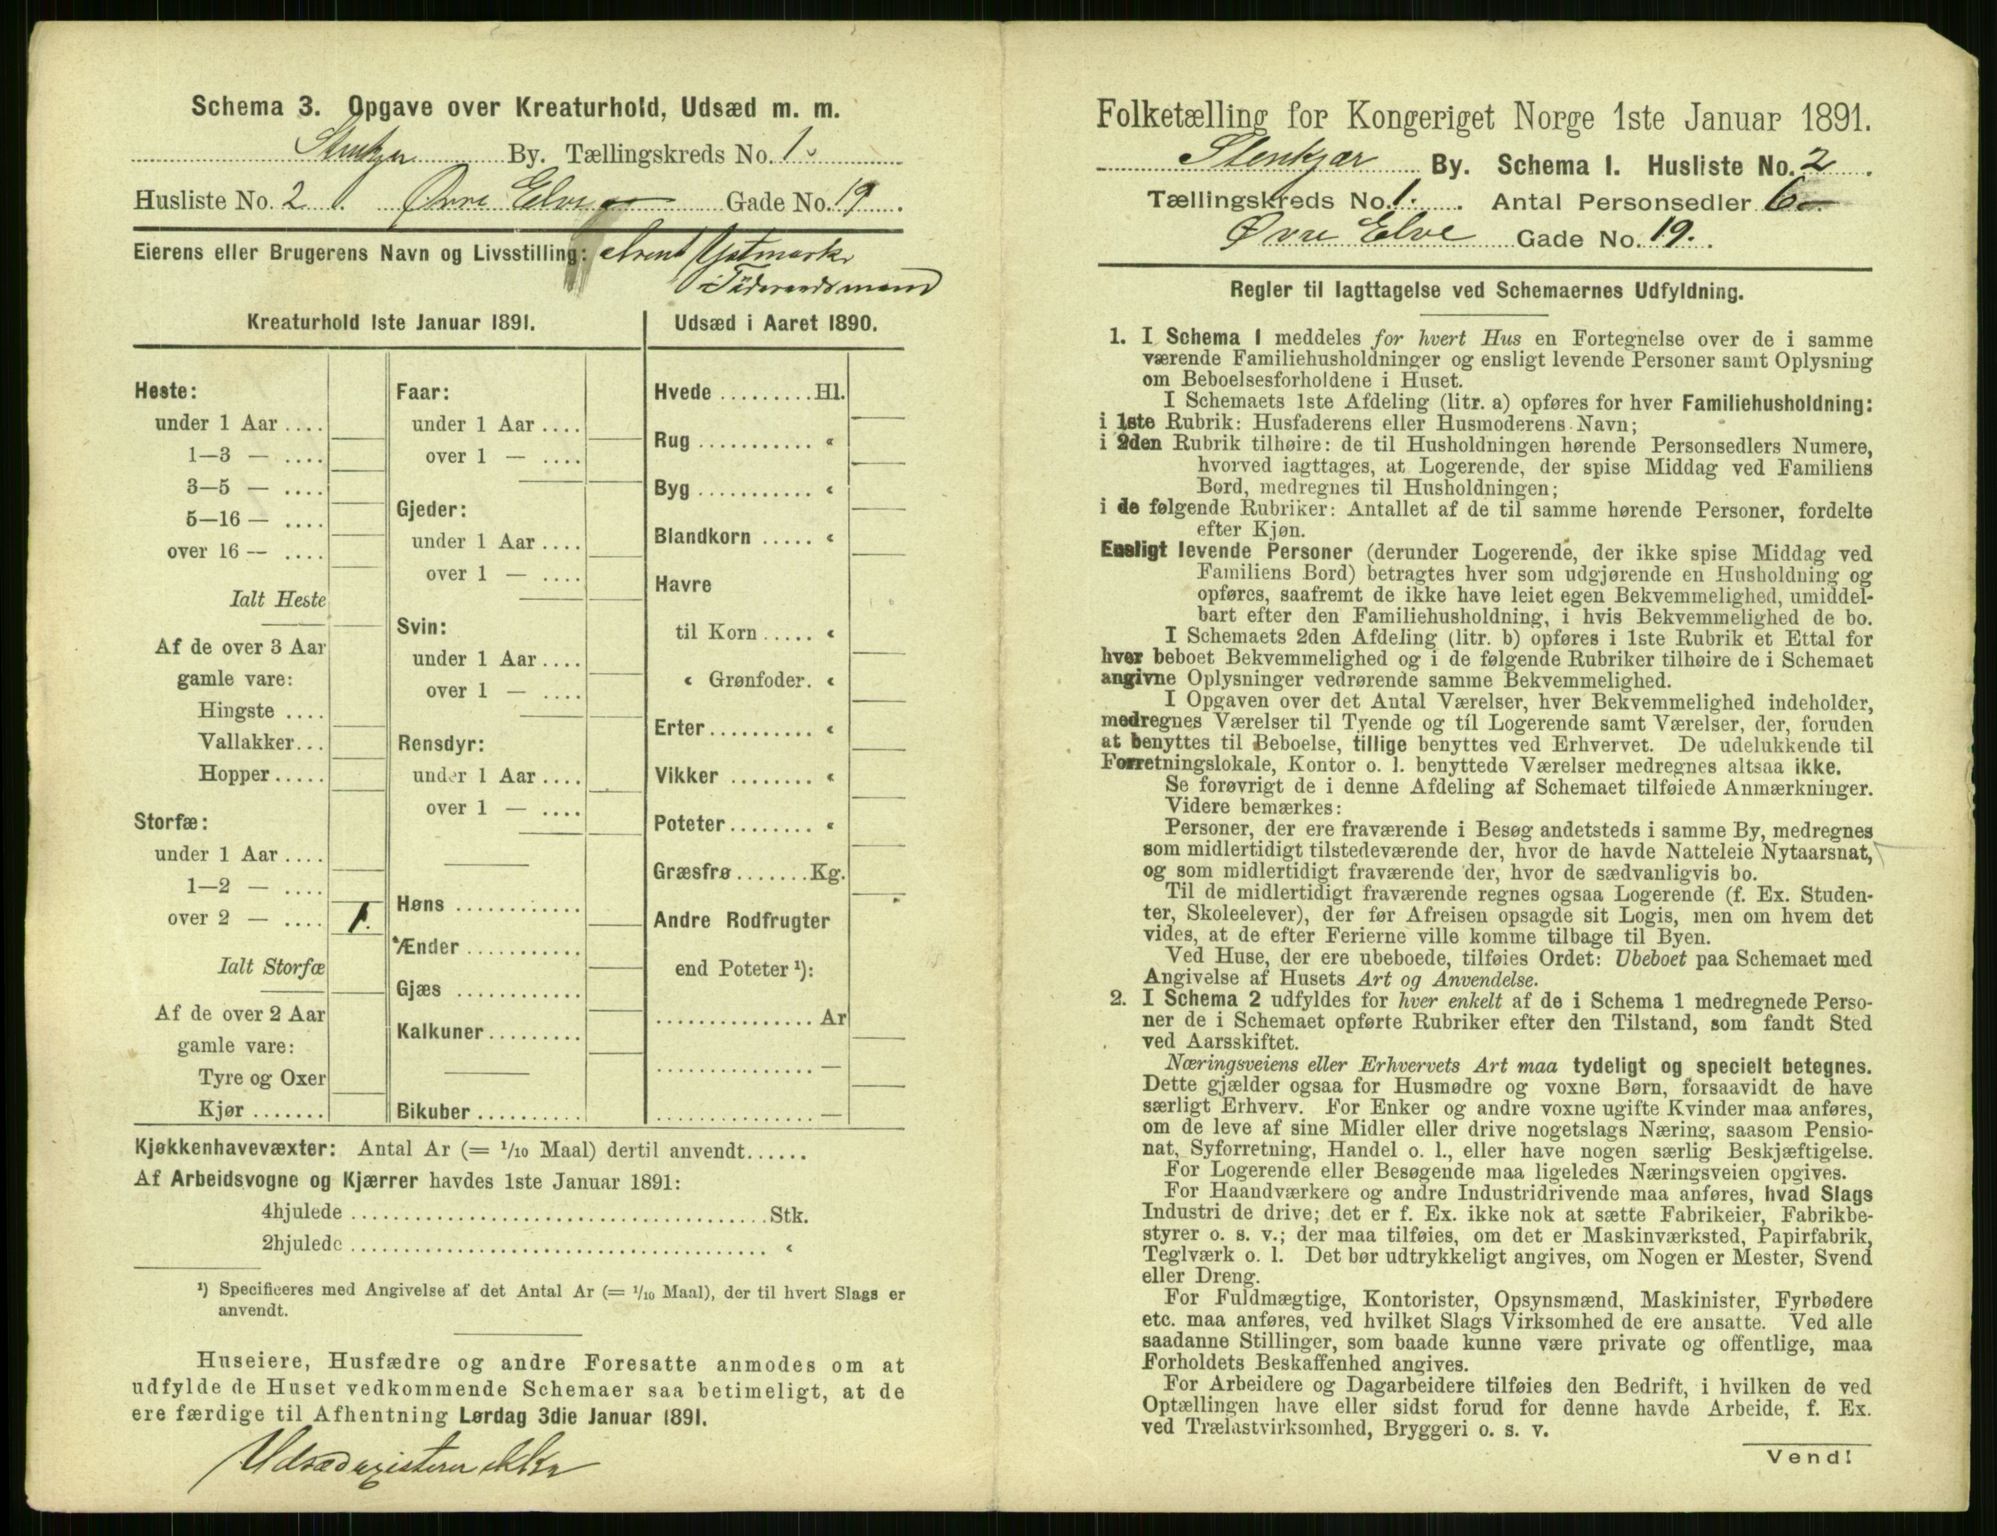 Schema 3. Opgave over Kreaturhold, Udsæd m. m.
Stenkjær By. Tællingskreds No. 1.
Husliste No. 2. Øvre Elve Gade No. 19
Eierens eller Brugerens Navn og Livsstilling: Arent
Kreaturhold 1ste Januar 1891.
Heste:
under 1 Aar ....
1—3 — ....
3—5 — ....
5—16 — ....
over 16 — ....
Ialt Heste
Af de over 3 Aar
gamle vare:
Hingste ....
Vallakker...
Hopper.....
Storfæ:
under 1 Aar ....
1—2 — ....
over 2 — .... 1.
Ialt Storfæ
Af de over 2 Aar
gamle vare:
Tyre og Oxer
Kjør .......
Faar:
under 1 Aar ....
over 1 — ....
Gjeder:
under 1 Aar ....
over 1 — ....
Svin:
under 1 Aar ....
over 1 — ....
Rensdyr:
under 1 Aar ....
over 1 — ....
Høns ............
Ænder ...........
Gjæs ............
Kalkuner.........
Bikuber ..........
Udsæd i Aaret 1890.
Hvede .........Hl.
Rug ........... «
Byg ........... «
Blandkorn ..... «
Havre
til Korn ..... «
« Grønfoder. «
Erter.......... «
Vikker ........ «
Poteter........ «
Græsfrø .......Kg.
Andre Rodfrugter
end Poteter ¹):
............... Ar
............... —
............... —
Kjøkkenhavevæxter: Antal Ar (= 1/10 Maal) dertil anvendt......
Af Arbeidsvogne og Kjærrer havdes 1ste Januar 1891:
4hjulede ........................................Stk.
2hjulede ........................................ «
¹) Specificeres med Angivelse af det Antal Ar (= 1/10 Maal), der til hvert Slags er
anvendt.
Huseiere, Husfædre og andre Foresatte anmodes om at
udfylde de Huset vedkommende Schemaer saa betimeligt, at de
ere færdige til Afhentning Lørdag 3die Januar 1891.
Udsæd existerer ikke
Folketælling for Kongeriget Norge 1ste Januar 1891.
Stenkjær By. Schema 1. Husliste No. 2.
Tællingskreds No. 1. Antal Personsedler 6
Øvre Elve Gade No. 19.
Regler til Iagttagelse ved Schemaernes Udfyldning.
1. I Schema 1 meddeles for hvert Hus en Fortegnelse over de i samme
værende Familiehusholdninger og ensligt levende Personer samt Oplysning
om Beboelsesforholdene i Huset.
I Schemaets 1ste Afdeling (litr. a) opføres for hver Familiehusholdning:
i 1ste Rubrik: Husfaderens eller Husmoderens Navn;
i 2den Rubrik tilhøire: de til Husholdningen hørende Personsedlers Numere,
hvorved iagttages, at Logerende, der spise Middag ved Familiens
Bord, medregnes til Husholdningen;
i de følgende Rubriker: Antallet af de til samme hørende Personer, fordelte
efter Kjøn.
Ensligt levende Personer (derunder Logerende, der ikke spise Middag ved
Familiens Bord) betragtes hver som udgjørende en Husholdning og
opføres, saafremt de ikke have leiet egen Bekvemmelighed, umiddel-
bart efter den Familiehusholdning, i hvis Bekvemmelighed de bo.
I Schemaets 2den Afdeling (litr. b) opføres i 1ste Rubrik et Ettal for
hver beboet Bekvemmelighed og i de følgende Rubriker tilhøire de i Schemaet
angivne Oplysninger vedrørende samme Bekvemmelighed.
I Opgaven over det Antal Værelser, hver Bekvemmelighed indeholder,
medregnes Værelser til Tyende og til Logerende samt Værelser, der, foruden
at benyttes til Beboelse, tillige benyttes ved Erhvervet. De udelukkende til
Forretningslokale, Kontor o. l. benyttede Værelser medregnes altsaa ikke.
Se forøvrigt de i denne Afdeling af Schemaet tilføiede Anmærkninger.
Videre bemærkes:
Personer, der ere fraværende i Besøg andetsteds i samme By, medregnes
som midlertidigt tilstedeværende der, hvor de havde Natteleie Nytaarsnat,
og som midlertidigt fraværende der, hvor de sædvanligvis bo.
Til de midlertidigt fraværende regnes ogsaa Logerende (f. Ex. Studen-
ter, Skoleelever), der før Afreisen opsagde sit Logis, men om hvem det
vides, at de efter Ferierne ville komme tilbage til Byen.
Ved Huse, der ere ubeboede, tilføies Ordet: Ubeboet paa Schemaet med
Angivelse af Husets Art og Anvendelse.
2. I Schema 2 udfyldes for hver enkelt af de i Schema 1 medregnede Perso-
ner de i Schemaet opførte Rubriker efter den Tilstand, som fandt Sted
ved Aarsskiftet.
Næringsveiens eller Erhvervets Art maa tydeligt og specielt betegnes.
Dette gjælder ogsaa for Husmødre og voxne Børn, forsaavidt de have
særligt Erhverv. For Enker og andre voxne ugifte Kvinder maa anføres,
om de leve af sine Midler eller drive nogetslags Næring, saasom Pensio-
nat, Syforretning, Handel o. l., eller have nogen særlig Beskjæftigelse.
For Logerende eller Besøgende maa ligeledes Næringsveien opgives.
For Haandværkere og andre Industridrivende maa anføres, hvad Slags
Industri de drive; det er f. Ex. ikke nok at sætte Fabrikeier, Fabrikbe-
styrer o. s. v.; der maa tilføies, om det er Maskinværksted, Papirfabrik,
Teglværk o. l. Det bør udtrykkeligt angives, om Nogen er Mester, Svend
eller Dreng.
For Fuldmægtige, Kontorister, Opsynsmænd, Maskinister, Fyrbødere
etc. maa anføres, ved hvilket Slags Virksomhed de ere ansatte. Ved alle
saadanne Stillinger, som baade kunne være private og offentlige, maa
Forholdets Beskaffenhed angives.
For Arbeidere og Dagarbeidere tilføies den Bedrift, i hvilken de ved
Optællingen have eller sidst forud for denne havde Arbeide, f. Ex.
ved Trælastvirksomhed, Bryggeri o. s. v.
Vend!